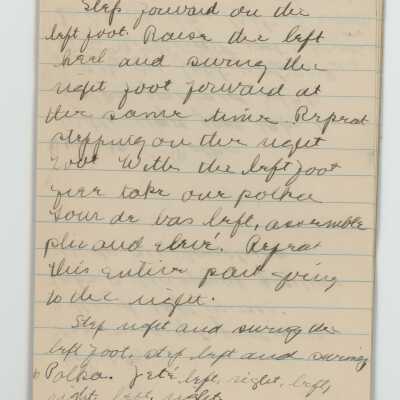 Step forward on the
left foot. Raise the left
heel and swing the
right foot forward at
the same time. Repeat
stepping on the right
foot. With the left foot
free take one polka
tour de bas left, assemble
plie and elevé. Repeat
this entire part going
to the right.
Step right and swing the
left foot, step left and swing
Polka. Jeté left, right, left,
right, left, right